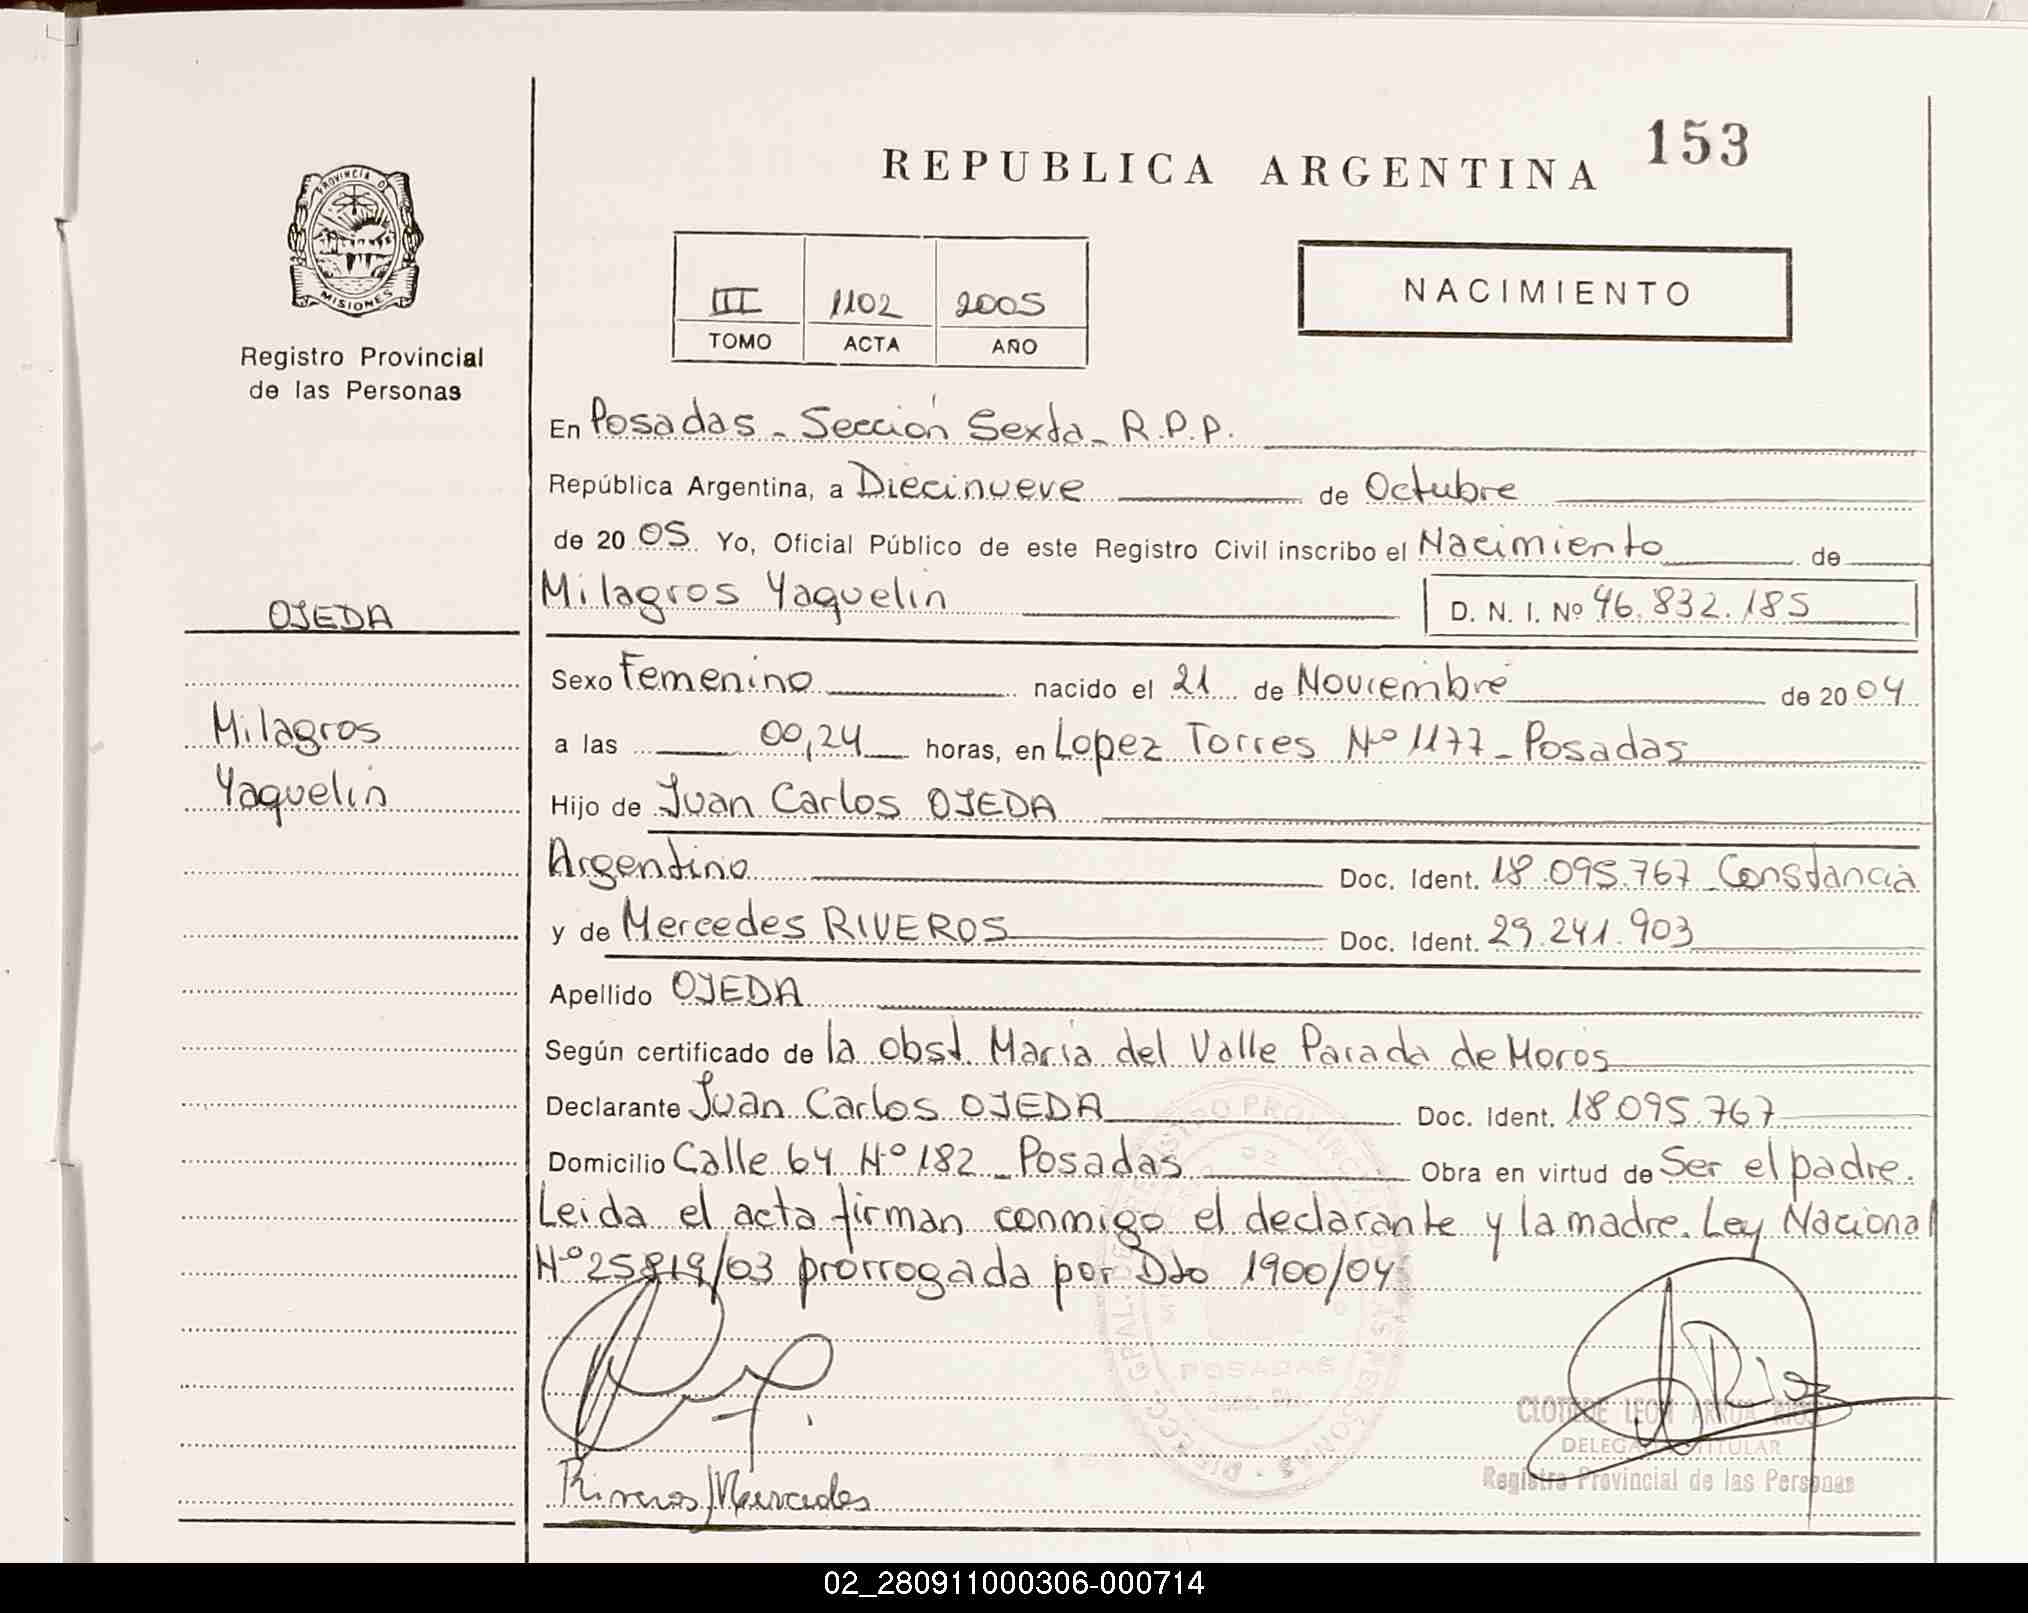 REPUBLICA ARGENTINA 153
PROVINCIA D
MISIONES
Registro Provincial
de las Personas
III 1102 2005
TOMO ACTA AÑO
NACIMIENTO
En Posadas - Sección Sexta - R.P.P.
República Argentina, a Diecinueve de Octubre
de 20 05 Yo, Oficial Público de este Registro Civil inscribo el Nacimiento de
Milagros Yaquelin D. N. I. Nº 46.832.185
OJEDA
Milagros
Yaquelin
Sexo Femenino nacido el 21 de Noviembre de 20 04
a las 00,24 horas, en Lopez Torres Nº 1177 - Posadas
Hijo de Juan Carlos OJEDA
Argentino Doc. Ident. 18.095.767 Constancia
y de Mercedes RIVEROS Doc. Ident. 29.241.903
Apellido OJEDA
Según certificado de la obst. Maria del Valle Parada de Moros
Declarante Juan Carlos OJEDA Doc. Ident. 18.095.767
Domicilio Calle 64 Nº 182 - Posadas Obra en virtud de Ser el padre.
Leida el acta firman conmigo el declarante y la madre. Ley Nacional
Nº 25819/03 prorrogada por Dto 1900/04
POSADAS
CLOTILDE LEON ARRUA RIOS
DELEGADO TITULAR
Registro Provincial de las Personas
Riveros Mercedes
02_280911000306-000714